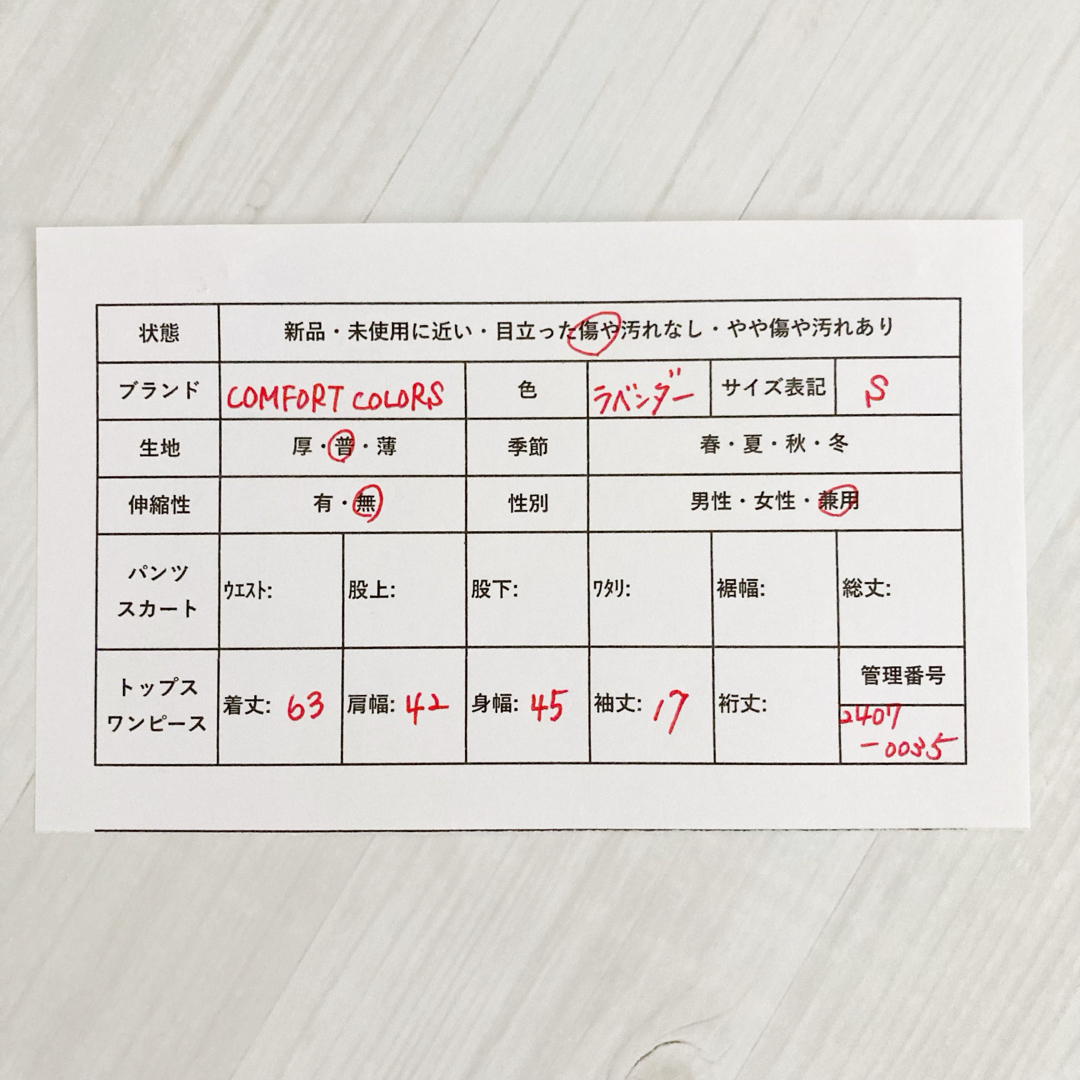 状態 新品・未使用に近い・目立った傷や汚れなし・やや傷や汚れあり
ブランド COMFORT COLORS 色 ラベンダー サイズ表記 S
生地 厚・普・薄 季節 春・夏・秋・冬
伸縮性 有・無 性別 男性・女性・兼用
パンツ
スカート
ｳｴｽﾄ: 股上: 股下: ﾜﾀﾘ: 裾幅: 総丈:
トップス
ワンピース
着丈: 63 肩幅: 42 身幅: 45 袖丈: 17 裄丈:
管理番号
2407
-0035